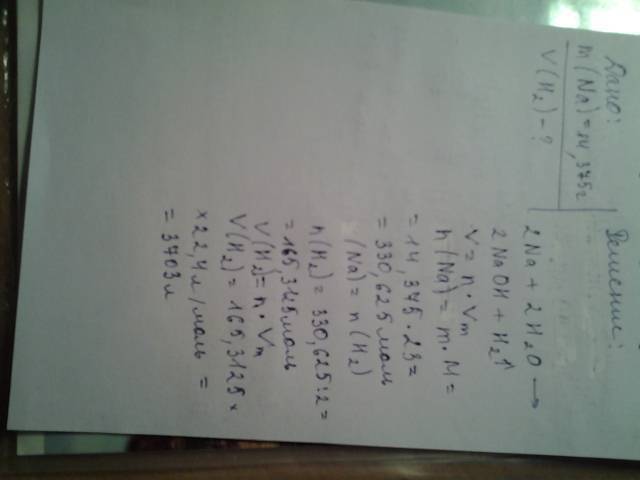 Дано:
m(Na)=14,375г
V(H₂)-?
Решение:
2Na + 2H₂O →
2NaOH + H₂↑
V = n · Vm
n(Na) = m · M =
= 14,375 · 23 =
= 330,625 моль
(Na) = n(H₂)
n(H₂) = 330,625 : 2 =
= 165,3125 моль
V(H₂) = n · Vm
V(H₂) = 165,3125 ×
× 22,4 л/моль =
= 3703 л